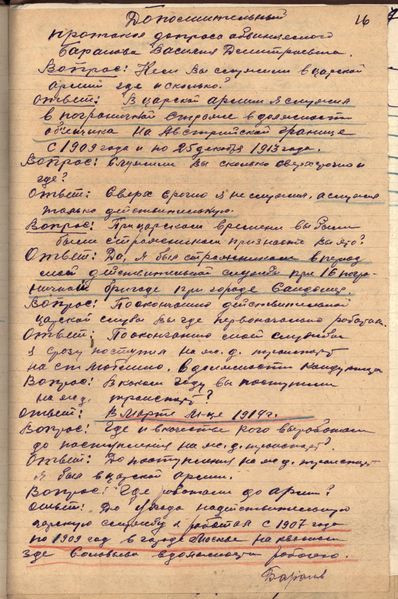 16
Дополнительный
протокол допроса обвиняемого
Баранова Василия Дмитриевича.
Вопрос: Если Вы служили в царской
армии где и сколько?
Ответ: В царской армии я служил
в пограничной страже в должности
объезчика на Австрийской границе
с 1909 года и по 25 декабря 1913 года.
Вопрос: Вы сколько сверхсрочно и
где?
Ответ: Сверх срочно я не служил, а служил
только действительную.
Вопрос: При царском времени вы были
были стражником признаете вы это?
Ответ: Да, я был стражником в период
моей действительной службы при 16 погра-
ничной бригаде при городе
Вопрос: По окончанию действительной
царской службы вы где первоначально работали.
Ответ: По окончанию моей службы
я сразу поступил на жел. д. транспорт
на ст. в должности кондуктора
Вопрос: В каком году вы поступили
на жел. транспорт?
Ответ: В Марте м-це 1914 г.
Вопрос: Где и в качестве кого вы работали
до поступления на жел. д. транспорт?
Ответ: До поступления на жел. д. транспорт
я был в царской армии.
Вопрос: Где работали до армии?
Ответ: До ухода на действительную
царскую службу я работал с 1907 года
по 1909 год в городе Москве на
где в должности рабочего.
Баранов